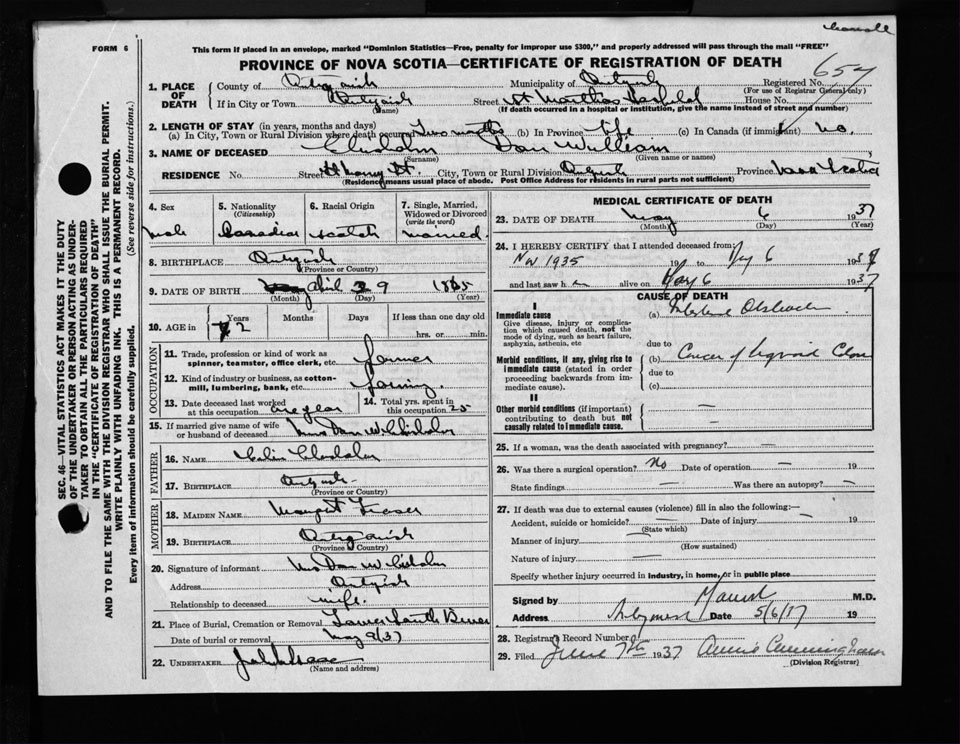 FORM 6
This form if placed in an envelope, marked "Dominion Statistics—Free, penalty for improper use $300," and properly addressed will pass through the mail "FREE"
PROVINCE OF NOVA SCOTIA—CERTIFICATE OF REGISTRATION OF DEATH
657
SEC. 46—VITAL STATISTICS ACT MAKES IT THE DUTY
OF THE UNDERTAKER OR PERSON ACTING AS UNDER-
TAKER TO OBTAIN ALL THE PARTICULARS REQUIRED
IN THE "CERTIFICATE OF REGISTRATION OF DEATH"
AND TO FILE THE SAME WITH THE DIVISION REGISTRAR WHO SHALL ISSUE THE BURIAL PERMIT.
WRITE PLAINLY WITH UNFADING INK. THIS IS A PERMANENT RECORD.
Every item of information should be carefully supplied. (See reverse side for instructions.)
1. PLACE OF DEATH County of Antigonish Municipality of Antigonish Registered No.
(For use of Registrar General only)
If in City or Town Antigonish Street St Marthas Hospital House No.
(Name) (If death occurred in a hospital or institution, give the name instead of street and number)
2. LENGTH OF STAY (in years, months and days)
(a) In City, Town or Rural Division where death occurred Two months (b) In Province life (c) In Canada (if immigrant) no.
3. NAME OF DECEASED Chisholm Dan William
(Surname) (Given name or names)
RESIDENCE No. Street St Marys St. City, Town or Rural Division Antigonish Province Nova Scotia
(Residence means usual place of abode. Post Office Address for residents in rural parts not sufficient)
4. Sex male
5. Nationality (Citizenship) Canadian
6. Racial Origin Scotch
7. Single, Married, Widowed or Divorced (write the word) married
8. BIRTHPLACE Antigonish
(Province or Country)
9. DATE OF BIRTH April 9 1865
(Month) (Day) (Year)
10. AGE in Years 72 Months Days If less than one day old
hrs. or min.
OCCUPATION
11. Trade, profession or kind of work as spinner, teamster, office clerk, etc. farmer
12. Kind of industry or business, as cotton-mill, lumbering, bank, etc. farming
13. Date deceased last worked at this occupation one year
14. Total yrs. spent in this occupation 25
15. If married give name of wife or husband of deceased Mrs Dan W Chisholm
FATHER
16. NAME Colin Chisholm
17. BIRTHPLACE Antigonish
(Province or Country)
MOTHER
18. MAIDEN NAME Margret Fraser
19. BIRTHPLACE Antigonish
(Province or Country)
20. Signature of informant Mrs Dan W Chisholm
Address Antigonish
Relationship to deceased wife.
21. Place of Burial, Cremation or Removal Lower South River
Date of burial or removal May 8/37
22. UNDERTAKER
(Name and address)
MEDICAL CERTIFICATE OF DEATH
23. DATE OF DEATH May 6 1937
(Month) (Day) (Year)
24. I HEREBY CERTIFY that I attended deceased from:
Nov 1935 19 to May 6 1937
and last saw h im alive on May 6 1937
CAUSE OF DEATH
I
Immediate cause
Give disease, injury or complication which caused death, not the mode of dying, such as heart failure, asphyxia, asthenia, etc
(a) Intestinal Obstruction
due to
Morbid conditions, if any, giving rise to immediate cause (stated in order proceeding backwards from immediate cause).
(b) Cancer of Sigmoid Colon
due to
(c)
II
Other morbid conditions (if important) contributing to death but not causally related to immediate cause.
25. If a woman, was the death associated with pregnancy? —
26. Was there a surgical operation? No Date of operation — 19
State findings — Was there an autopsy? —
27. If death was due to external causes (violence) fill in also the following:—
Accident, suicide or homicide? — Date of injury — 19
(State which)
Manner of injury —
(How sustained)
Nature of injury —
Specify whether injury occurred in industry, in home, or in public place
Signed by M.D.
Address Antigonish Date 5/6/37 19
28. Registrar's Record Number
29. Filed June 7th 1937 Annie Cunningham
(Division Registrar)